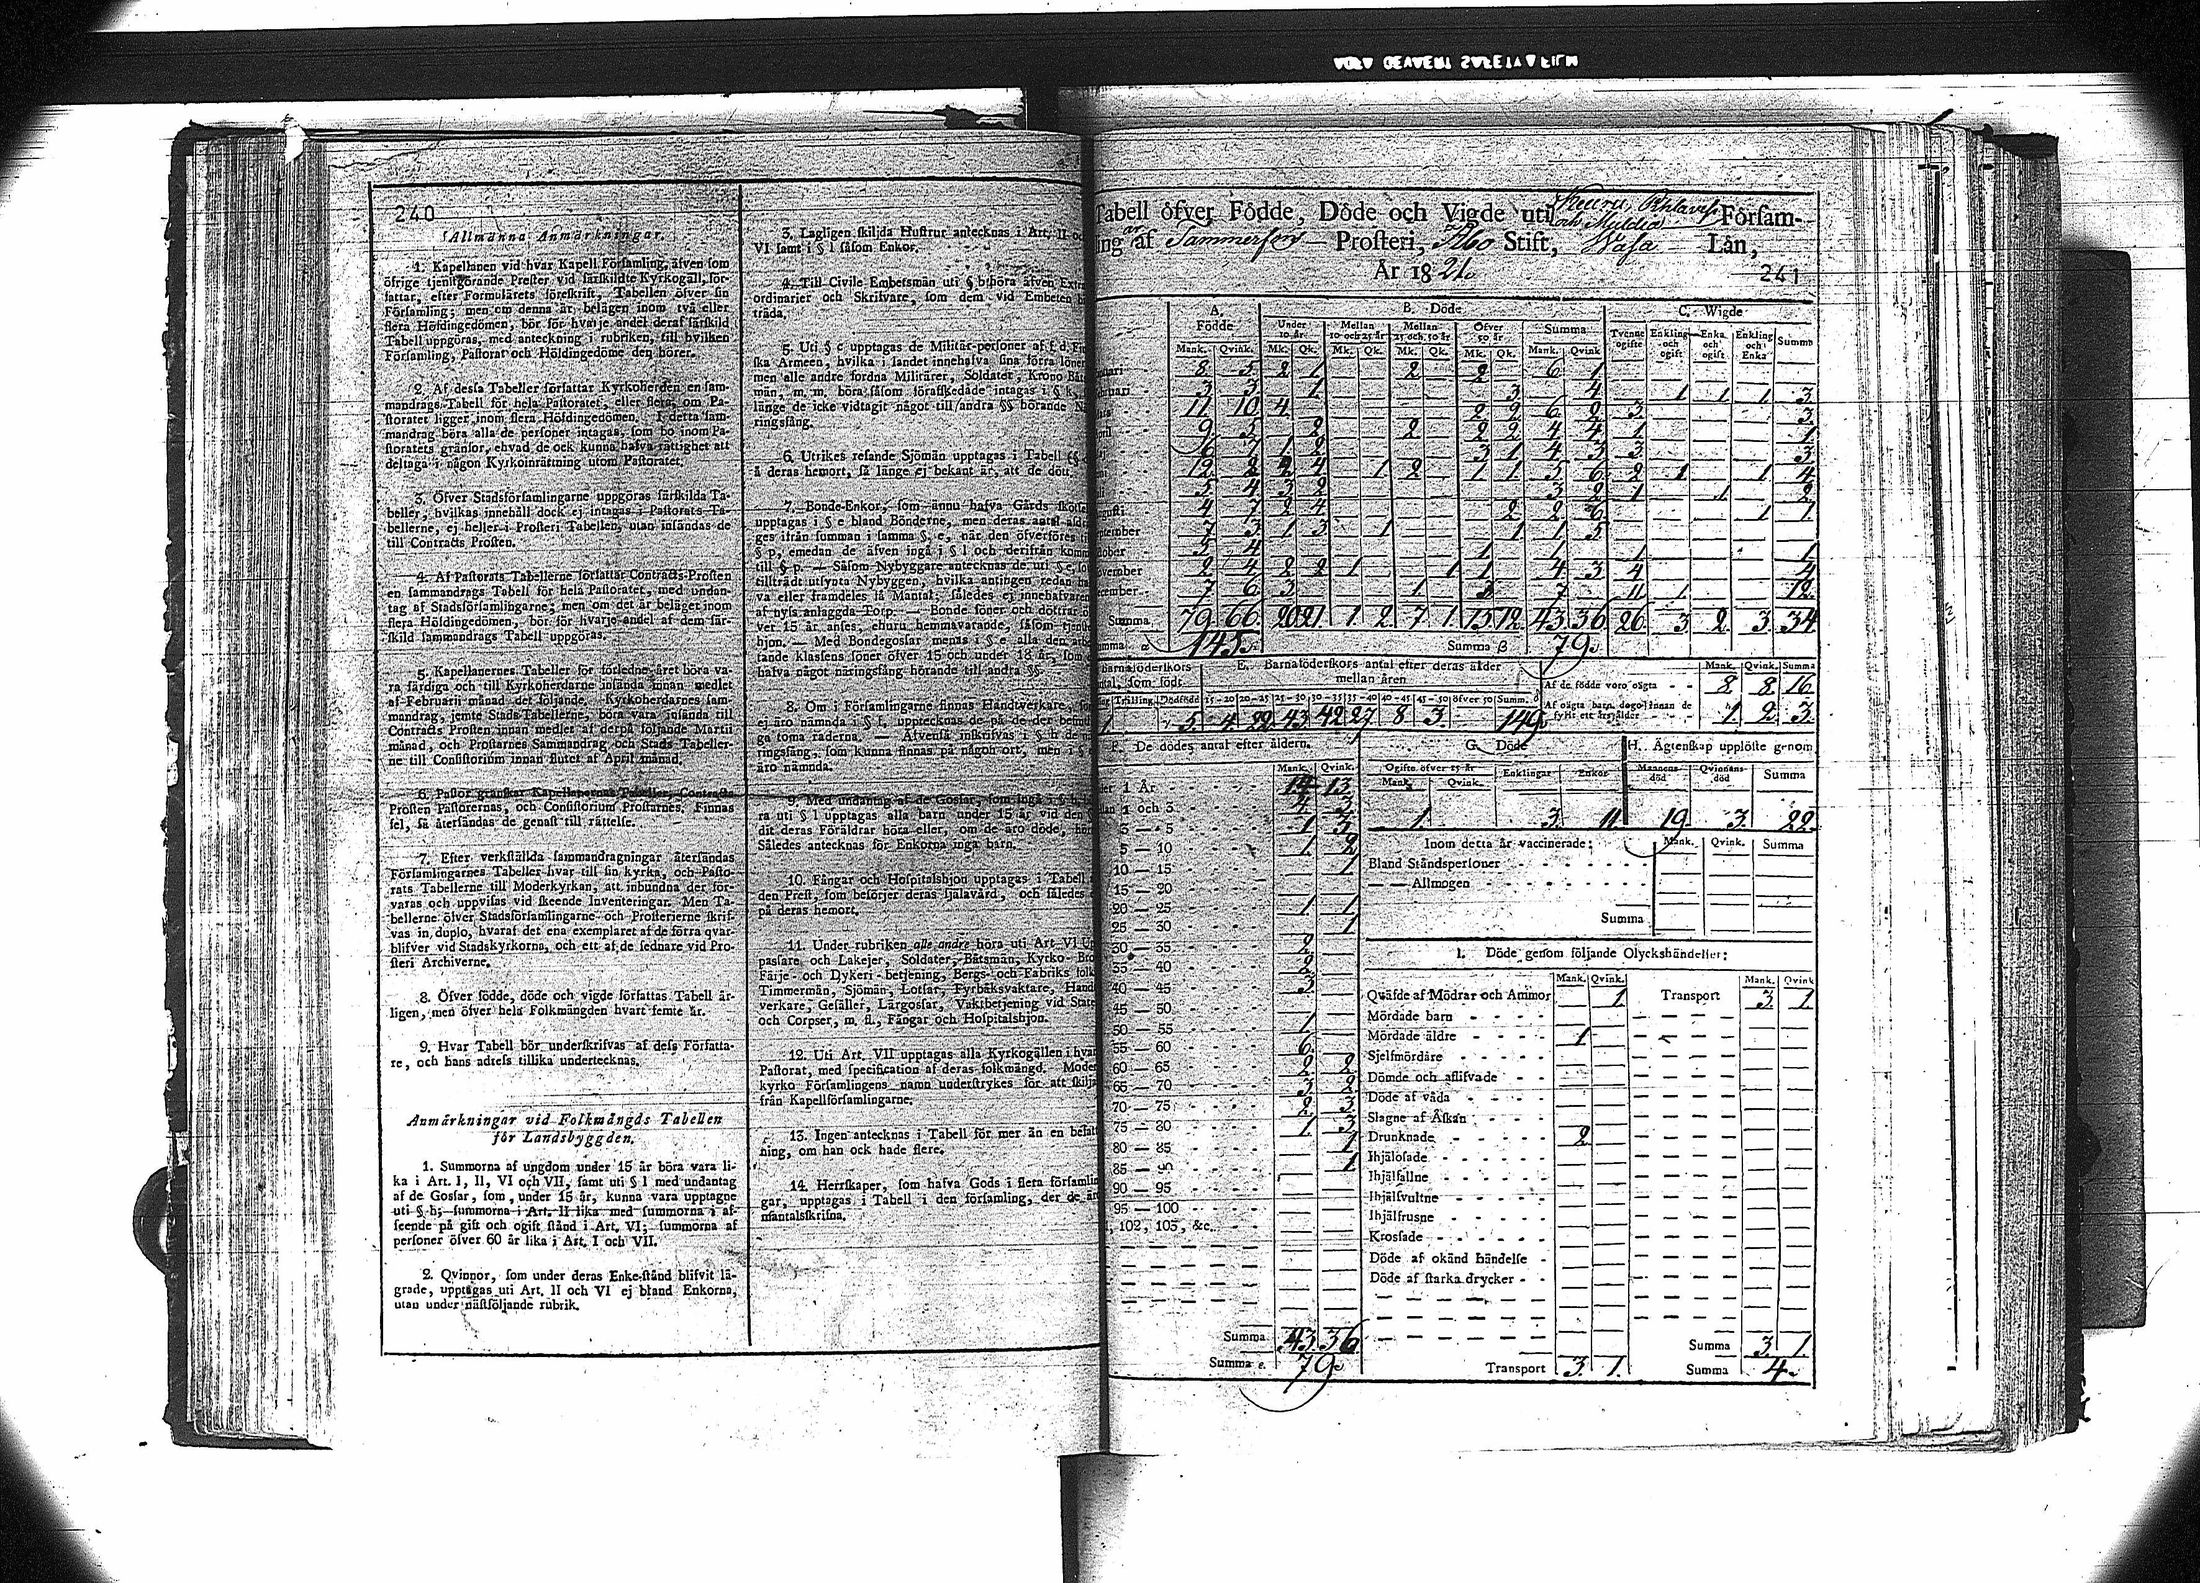 240
Allmänna Anmärkningar.
1. Kapellanen vid hvar Kapell Församling, äfven som
öfrige tjenstgörande Prester vid särskildte Kyrkogäll, för-
fattar, efter Formulärets föreskrift, Tabellen öfver sin
Församling; men om denna är belägen inom två eller
flera Höfdingedömen, bör för hvarje andel deraf särskild
Tabell uppgöras, med anteckning i rubriken, till hvilken
Församling, Pastorat och Höfdingedöme den hörer.
2. Af dessa Tabeller författar Kyrkoherden en sam-
mandrags Tabell för hela Pastoratet, eller flera, om Pa-
storatet ligger inom flera Höfdingedömen. I detta sam-
mandrag böra alla de personer intagas, som bo inom Pa-
storatets gränsor, ehvad de ock kunna hafva rättighet att
deltaga i någon Kyrkoinrättning utom Pastoratet.
3. Öfver Stadsförsamlingarne uppgöras särskilda Ta-
beller, hvilkas innehåll dock ej intagas i Pastorats Ta-
bellerne, ej heller i Prosteri Tabellen, utan insändas de
till Contracts Prosten.
4. Af Pastorats Tabellerne författar Contracts-Prosten
en sammandrags Tabell för hela Pastoratet, med undan-
tag af Stadsförsamlingarne; men om det är beläget inom
flera Höfdingedömen, bör för hvarje andel af dem sär-
skild sammandrags Tabell uppgöras.
5. Kapellanernes Tabeller för förledne året böra va-
ra färdiga och till Kyrkoherdarne insända innan medlet
af Februarii månad det följande. Kyrkoherdarnes sam-
mandrag, jemte Stads-Tabellerne, böra vara insända till
Contracts Prosten innan medlet af derpå följande Martii
månad, och Prostarnes Sammandrag och Stads Tabeller-
ne till Consistorium innan slutet af April månad.
6. Pastor granskar Kapellanernas Tabeller, Contracts
Prosten Pastorernas, och Consistorium Prostarnes. Finnas
fel, så återsändas de genast till rättelse.
7. Efter verkställda sammandragningar återsändas
Församlingarnes Tabeller hvar till sin kyrka, och Pasto-
rats Tabellerne till Moderkyrkan, att inbundna der för-
varas och uppvisas vid skeende Inventeringar. Men Ta-
bellerne öfver Stadsförsamlingarne och Prosterierne skrif-
vas in duplo, hvaraf det ena exemplaret af de förra qvar-
blifver vid Stadskyrkorna, och ett af de sednare vid Pro-
steri Archiverne.
8. Öfver födde, döde och vigde författas Tabell år-
ligen, men öfver hela Folkmängden hvart femte år.
9. Hvar Tabell bör underskrifvas af dess Författa-
re, och hans adress tillika undertecknas.
Anmärkningar vid Folkmängds Tabellen
för Landsbyggden.
1. Summorna af ungdom under 15 år böra vara li-
ka i Art. I, II, VI och VII, samt uti § l med undantag
af de Gossar, som, under 15 år, kunna vara upptagne
uti § h; summorna i Art. II lika med summorna i af-
seende på gift och ogift stånd i Art. VI; summorna af
personer öfver 60 år lika i Art. I och VII.
2. Qvinnor, som under deras Enke-stånd blifvit lä-
grade, upptagas uti Art. II och VI ej bland Enkorna,
utan under nästföljande rubrik.
3. Lagligen skiljda Hustrur antecknas i Art. II
VI samt i § l såsom Enkor.
4. Till Civile Embetsmän uti § b höra äfven
ordinarier och Skrifvare, som dem vid Embeten
träda.
5. Uti § c upptagas de Militär-personer af f. d.
ska Armeen, hvilka i landet innehafva sina förra
men alle andre fordna Militärer, Soldater, Krono
män, m. m. böra såsom förafskedade intagas i §
länge de icke vidtagit något till andra §§ hörande
ringsfång.
6. Utrikes resande Sjömän upptagas i Tabell
å deras hemort, så länge ej bekant är, att de dött.
7. Bonde-Enkor, som annu hafva Gårds
upptagas i § e bland Bönderne, men deras antal
ges ifrån summan i samma §. e, när den öfverföres
§ p, emedan de äfven ingå i § l och derifrån
till § p. — Såsom Nybyggare antecknas de uti § e,
tillträdt utsynta Nybyggen, hvilka antingen redan
va eller framdeles få Mantal, således ej innehafvaren
af nyss anlaggda Torp. — Bonde söner och döttrar
ver 15 år anses, ehuru hemmavarande, såsom
hjon. — Med Bondegossar menas i § e alla den
tande klassens söner öfver 15 och under 18 år, som
hafva något näringsfång hörande till andra §§.
8. Om i Församlingarne finnas Handtverkare,
ej äro nämnda i § f, upptecknas de på de der
ga toma raderna. — Äfvenså inskrifvas i § h de
ringsfång, som kunna finnas på någon ort, men i §
äro nämnda.
9. Med undantag af de Gossar, som ingå i § h
ra uti § l upptagas alla barn under 15 år vid den
dit deras Föräldrar höra eller, om de äro döde,
Således antecknas för Enkorna inga barn.
10. Fångar och Hospitalshjon upptagas i Tabell
den Prest, som besörjer deras själavård, och således
på deras hemort.
11. Under rubriken alle andre höra uti Art. VI
passare och Lakejer, Soldater, Båtsmän, Kyrko-
Färje- och Dykeri-betjening, Bergs- och Fabriks folk
Timmermän, Sjömän, Lotsar, Fyrbåksvaktare,
verkare, Gesäller, Lärgossar, Vaktbetjening vid
och Corpser, m. fl., Fångar och Hospitalshjon.
12. Uti Art. VII upptagas alla Kyrkogällen i
Pastorat, med specification af deras folkmängd.
kyrko Församlingens namn understrykes för att skilja
från Kapellförsamlingarne.
13. Ingen antecknas i Tabell för mer än en
ning, om han ock hade flere.
14. Herrskaper, som hafva Gods i flera
gar, upptagas i Tabell i den församling, der de
mantalsskrifna.
Tabell öfver Födde, Döde och Vigde uti Keuru, Pihlavesi Försam-
och Multia
ing af Tammerfors Prosteri, Åbo Stift, Wasa Län,
År 1821.
241
A. Födde B. Döde C. Wigde
Under 10 år Mellan 10 och 25 år Mellan 25 och 50 år Öfver 50 år Summa
Tvenne ogifte Enkling och ogift Enka och ogift Enkling och Enka Summa
Mank. Qvink. Mk. Qk. Mk. Qk. Mk. Qk. Mk. Qk. Mank. Qvink
8 5 2 1 2 2 6 1
3 3 1 3 4 1 1 1 3
11 10 4 2 2 6 2 3 3
9 5 2 2 2 2 4 4 1 1
6 7 1 2 3 1 4 3 3 3
12 8 2 4 1 2 1 1 5 6 2 1 1 4
5 4 3 2 3 2 1 1 2
4 7 2 4 2 2 6 1 1
7 3 1 3 1 1 1 5
5 4 1 1 1 1
2 4 2 2 1 1 1 4 3 4 4
7 6 3 1 3 7 11 1 12
Summa 79 66 20 21 1 2 7 1 15 12 43 36 26 3 2 3 34
145. Summa β 79.
E. Barnaföderskors antal efter deras ålder
mellan åren
Trilling Dödfödde 15-20 20-25 25-30 30-35 35-40 40-45 45-50 öfver 50 Summ.
1 5 4 22 43 42 27 8 3 149
Mank. Qvink. Summa
Af de födde voro oägta 8 8 16
Af oägta barn dogo innan de
fyllt ett årsålder 1 2 3
F. De dödes antal efter åldern.
Mank. Qvink.
1 År 14 13
1 och 3 4 3
3 — 5 1 3
5 — 10 1 2
10 — 15 1
15 — 20
20 — 25 1 1
25 — 30 1
30 — 35 2
35 — 40 2
40 — 45 3
45 — 50
50 — 55 1
55 — 60 6
60 — 65 2 2
65 — 70 3 2
70 — 75 2 3
75 — 80 1 3
80 — 85 1
85 — 90 1
90 — 95
95 — 100
102, 105, &c.
Summa 43 36
Summa ε. 79.
G. Döde
Ogifte öfver 15 år Enklingar Enkor
Mank. Qvink.
1. 3. 11.
H. Ägtenskap upplöste genom
Mannens död Qvinnans död Summa
19 3. 22.
Inom detta år vaccinerade: Mank. Qvink. Summa
Bland Ståndspersoner
— — Allmogen
Summa
I. Döde genom följande Olyckshändelser:
Mank. Qvink. Mank. Qvink
Qväfde af Mödrar och Ammor 1 Transport 3 1
Mördade barn
Mördade äldre 1
Sjelfmördare
Dömde och aflifvade
Döde af våda
Slagne af Åskan
Drunknade 2
Ihjälosade
Ihjälfallne
Ihjälsvultne
Ihjälfrusne
Krossade
Döde af okänd händelse
Döde af starka drycker
Summa 3. 1
Transport 3. 1. Summa 4.